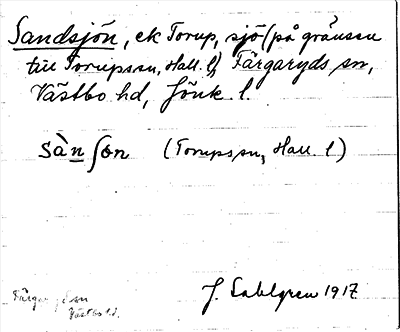 Sandsjön, ek Torup, sjö (på gränsen
till Torups sn, Hall. l), Färgaryds sn,
Västbo hd, Jönk. l.
sànʃon (Torups sn, Hall. l)
J. Sahlgren 1917
Färgaryds sn
Västbo hd.